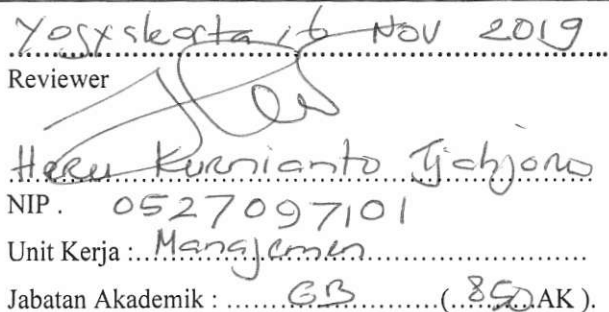 Yogyakarta, 16 Nov 2019
Reviewer
Heru Kurnianto Tjahjono
NIP . 0527097101
Unit Kerja : Manajemen
Jabatan Akademik : GB (850 AK ).